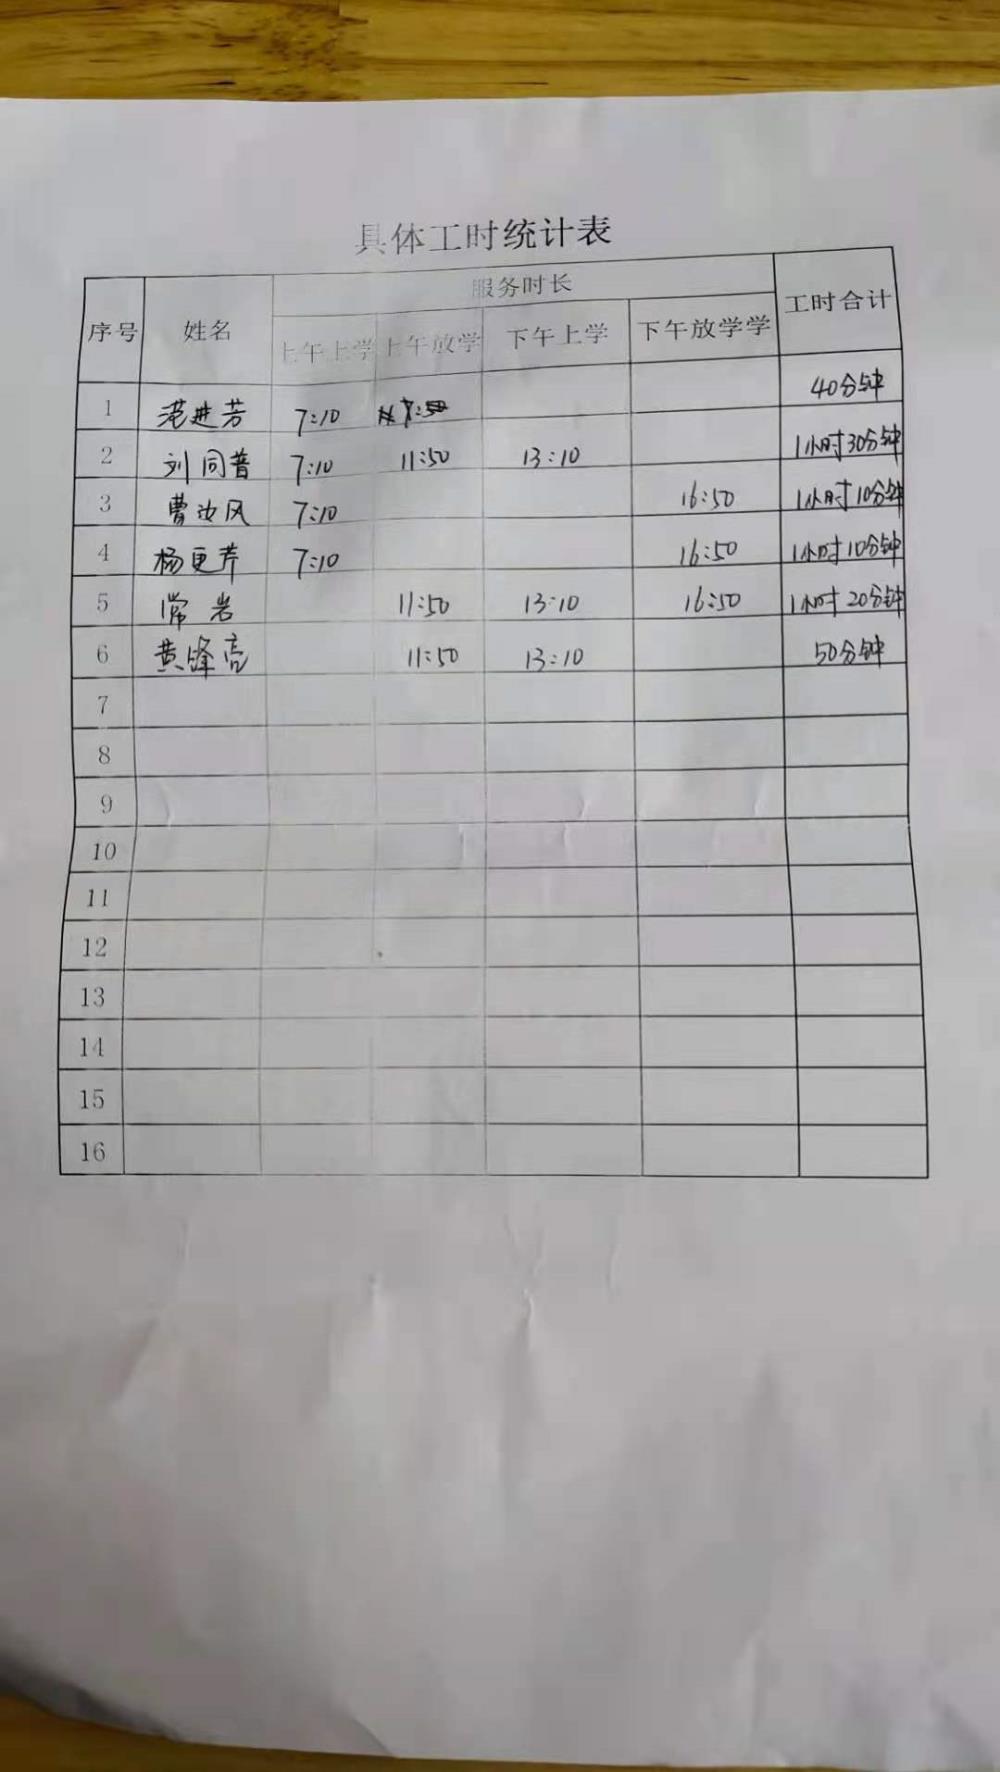 具体工时统计表
序号 姓名 服务时长 工时合计
上午上学 上午放学 下午上学 下午放学学
1 范进芳 7:10 40分钟
2 刘同普 7:10 11:50 13:10 1小时30分钟
3 曹汝风 7:10 16:50 1小时10分钟
4 杨更芹 7:10 16:50 1小时10分钟
5 常岩 11:50 13:10 16:50 1小时20分钟
6 黄峰亮 11:50 13:10 50分钟
7
8
9
10
11
12
13
14
15
16